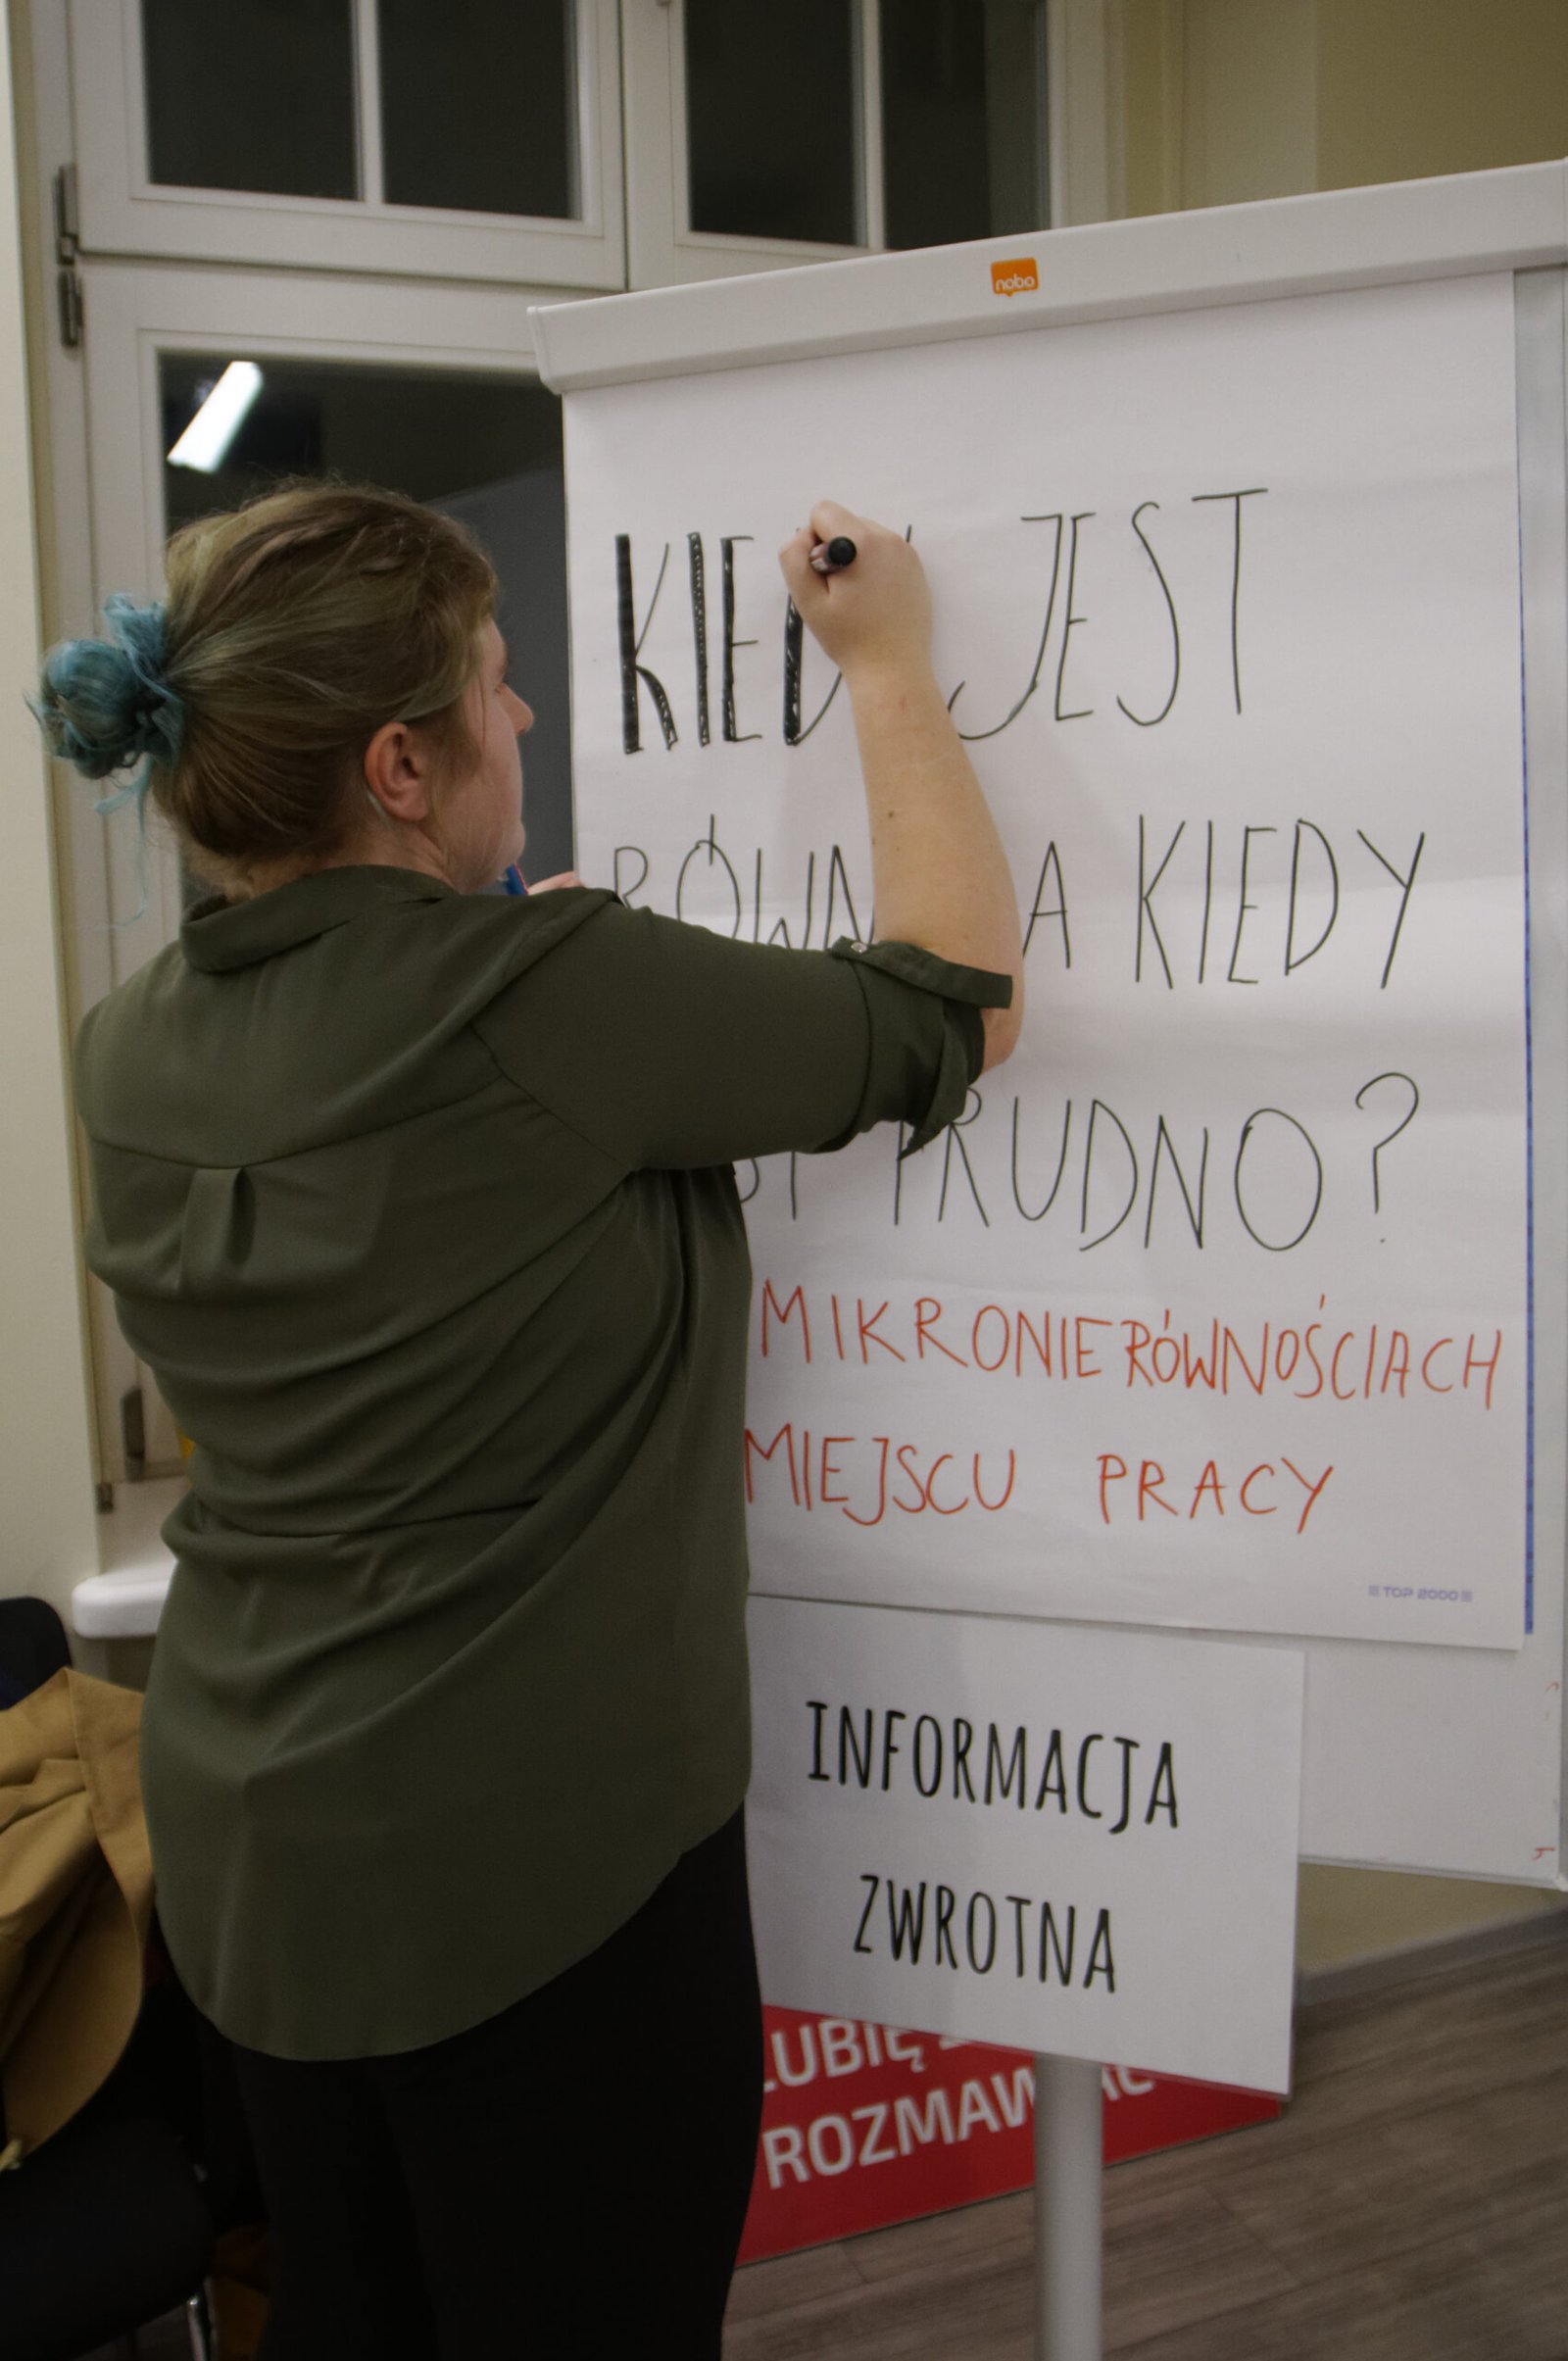 nobo
KIEDY JEST
RÓWNO A KIEDY
TRUDNO?
MIKRONIERÓWNOŚCIACH
MIEJSCU PRACY
TOP 2000
INFORMACJA
ZWROTNA
LUBIĘ
ROZMAWIAĆ